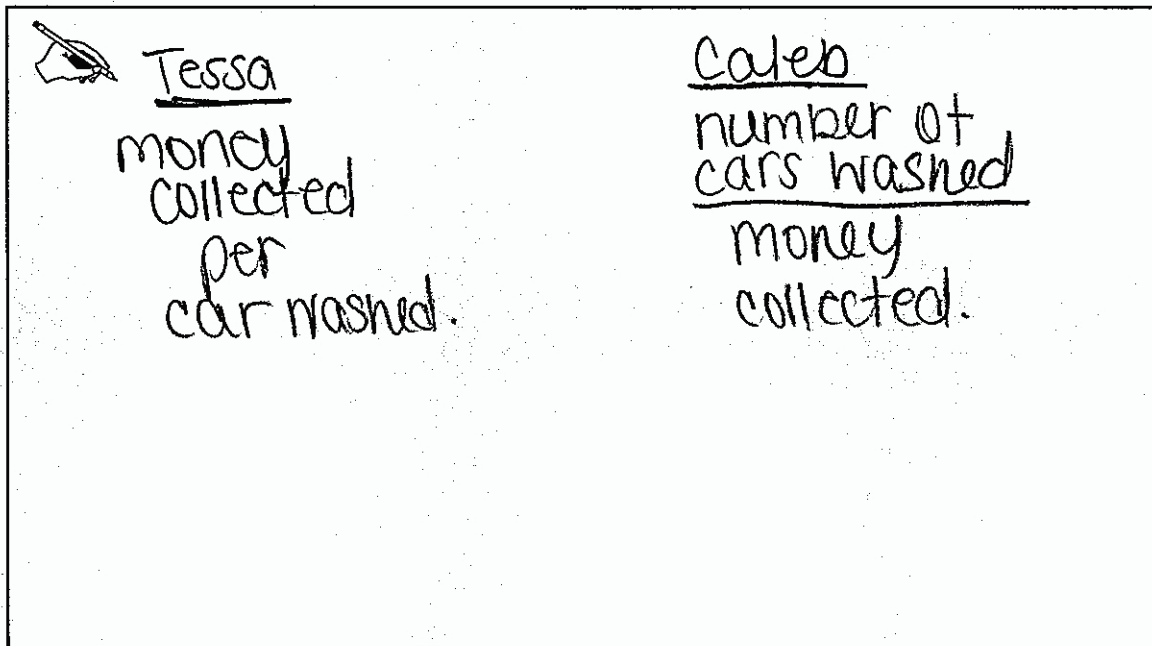 Tessa
money
collected
per
car washed.
Caleb
number of
cars washed
money
collected.